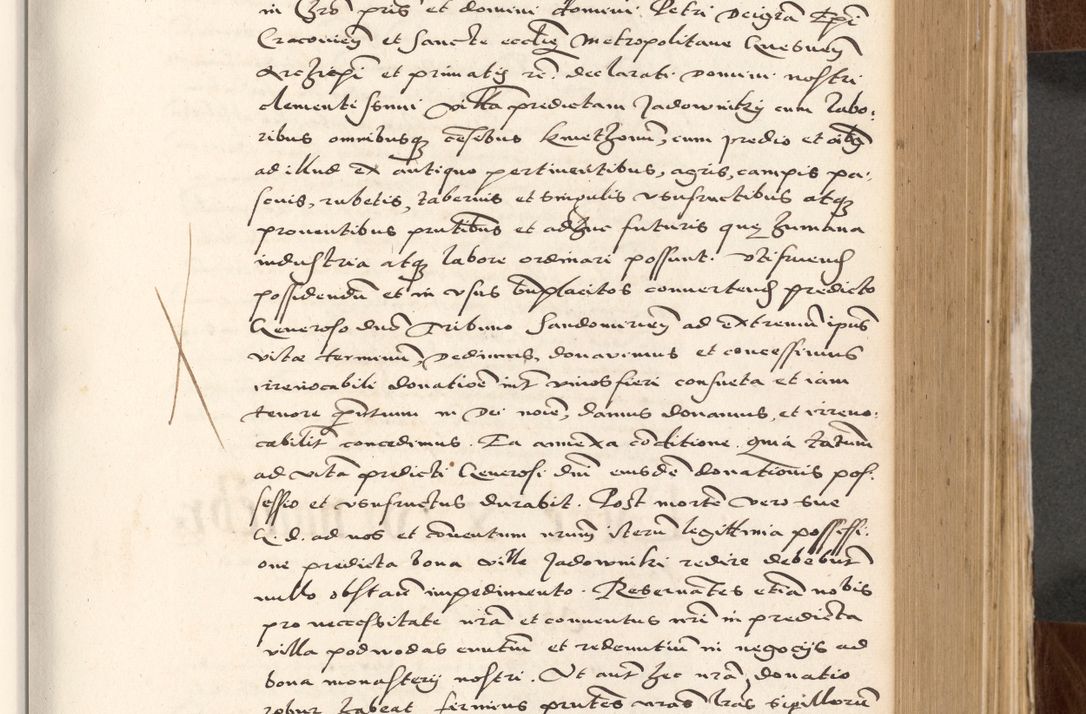 in Chro pris et domini Domini Petri Dei gra Epi
Cracovien et sancte ecclie Metropolitane Gnesnen
Archiepi et primatis re. declarati Domini nostri
clementissimi villa predictam Jadowniky cum labo,
ribus omnibusq censibus kmethonu, cum predio et oibg
ad illud ex antiquo pertinentibus, agris, campis pa,
scuis, rubetis, tabernis et singulis usufructibus atq
proventibus pntibus et adhuc futuris que humana
industria atq labore ordinari possunt. Utifruend
possidendu et in usus bnplacitos convertend predicto
Generoso dno Tribuno Sandomirien ad extremu ipius
vitae terminu, Dedimus, donavimus et concessimus
irrevocabili donatioe int vivos fieri consueta et iam
tenore pntium in Dei noie, damus donamus, et irrevo,
cabilit concedimus. Ea annexa coditione, quia tatum
ad vita predicti Generosi dni eiusde donationis pos,
sessio et usufructus durabit. Post morte vero sue
G. d. ad nos et conventum nrum iteru legittima possessi,
one predicta bona ville Jadowniki redire debebut
nullo obstan impedimento. Reservantes etia nobis
pro necessitate nra et conventus nri in predicta
villa podwodas euntiu et redeuntiu in negocijs ad
bona monasterij nostri. Ut aut hec nra donatio
robur habeat firmius pntes nras lras sigillorum